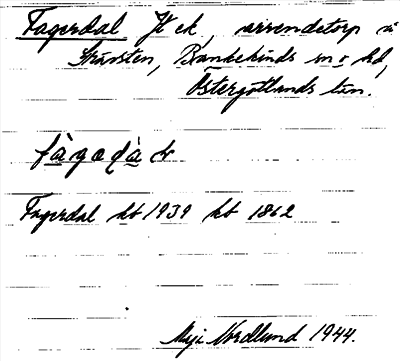 Fagerdal Jk ek, arrendetorp u
Stråvsten, Bankekinds sn o hd,
Östergötlands län.
fàgədàl
Fagerdal kb 1939 kb 1862
Maj Nordlund 1944.